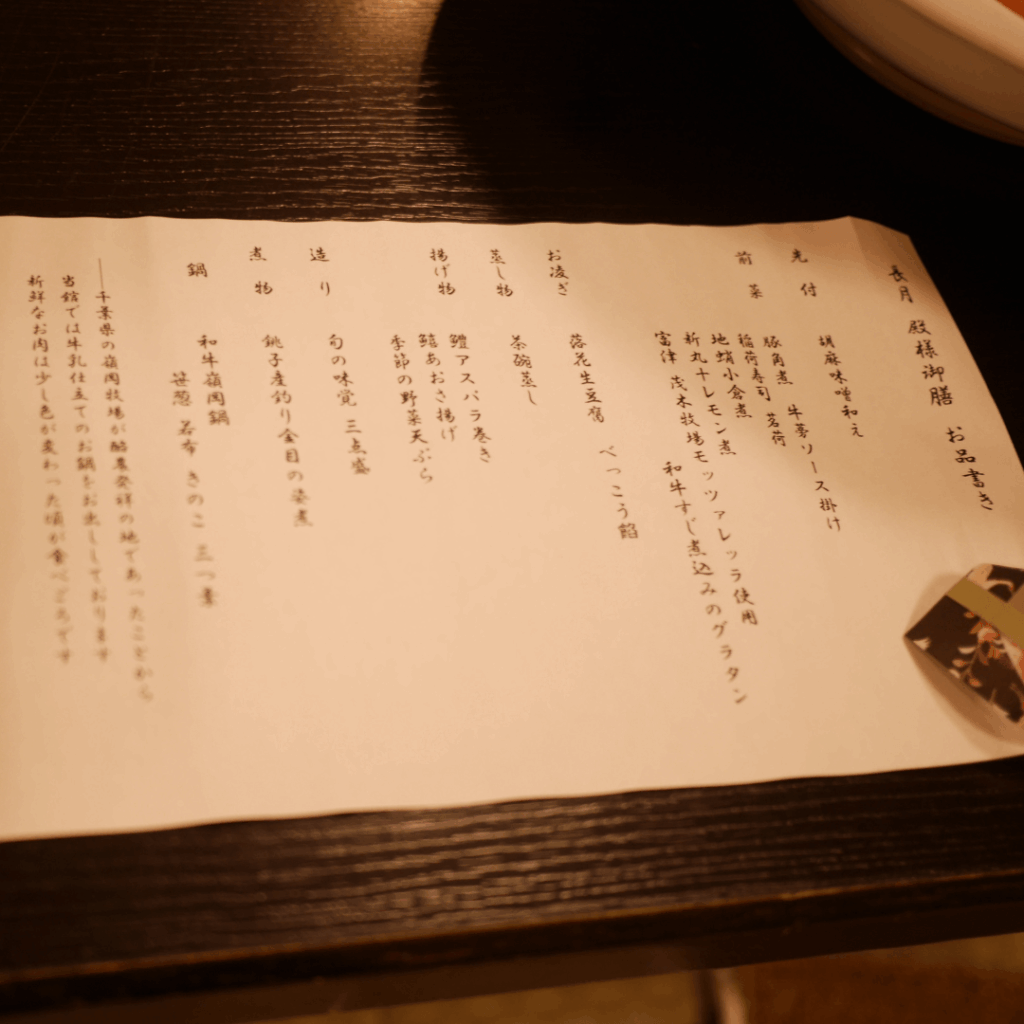 長月 殿様御膳 お品書き
先付
胡麻味噌和え
前菜
豚角煮 牛蒡ソース掛け
稲荷寿司 茗荷
地蛸小倉煮
新丸十レモン煮
富津 茂木牧場モッツァレッラ使用
和牛すじ煮込みのグラタン
お凌ぎ
落花生豆腐 べっこう餡
蒸し物
茶碗蒸し
揚げ物
鱧アスパラ巻き
鱚あおさ揚げ
季節の野菜天ぷら
造り
旬の味覚 三点盛
煮物
銚子産釣り金目の姿煮
鍋
和牛嶺岡鍋
笹葱 若布 きのこ 三つ葉
―千葉県の嶺岡牧場が酪農発祥の地であったことから
当館では牛乳仕立てのお鍋をお出ししております
新鮮なお肉は少し色が変わった頃が食べごろです